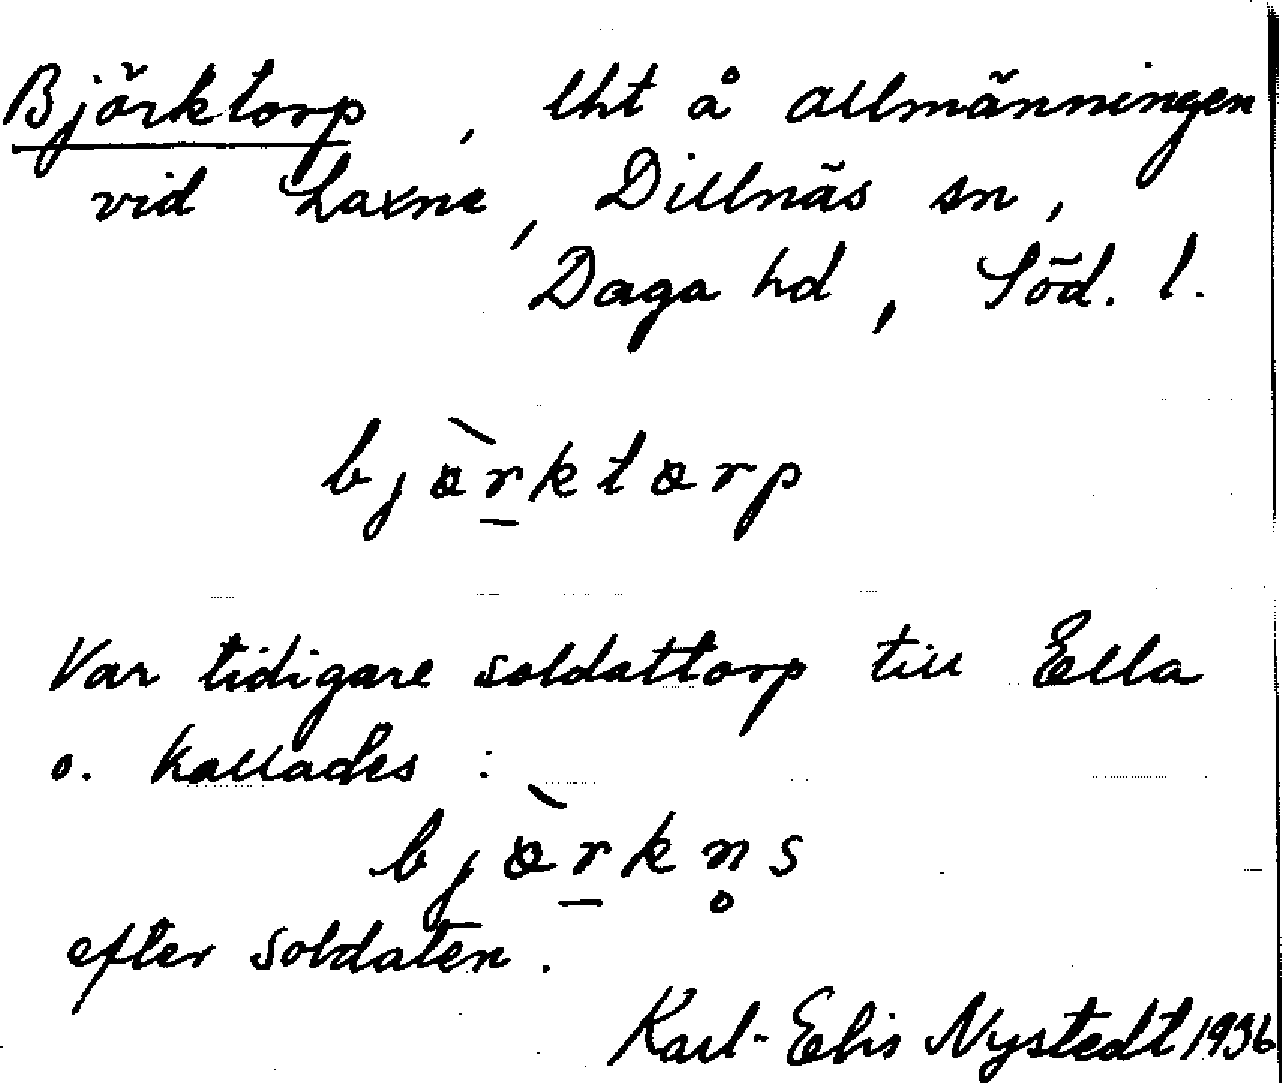 Björktorp, lht å allmänningen
vid Laxne, Dillnäs sn,
Daga hd, Söd. l.
bjɵ̀r̠ktɵrp
Var tidigare soldattorp till Ella
o. kallades:
bjɵ̀r̠kn̥s
efter soldaten.
Karl-Elis Nystedt 1936